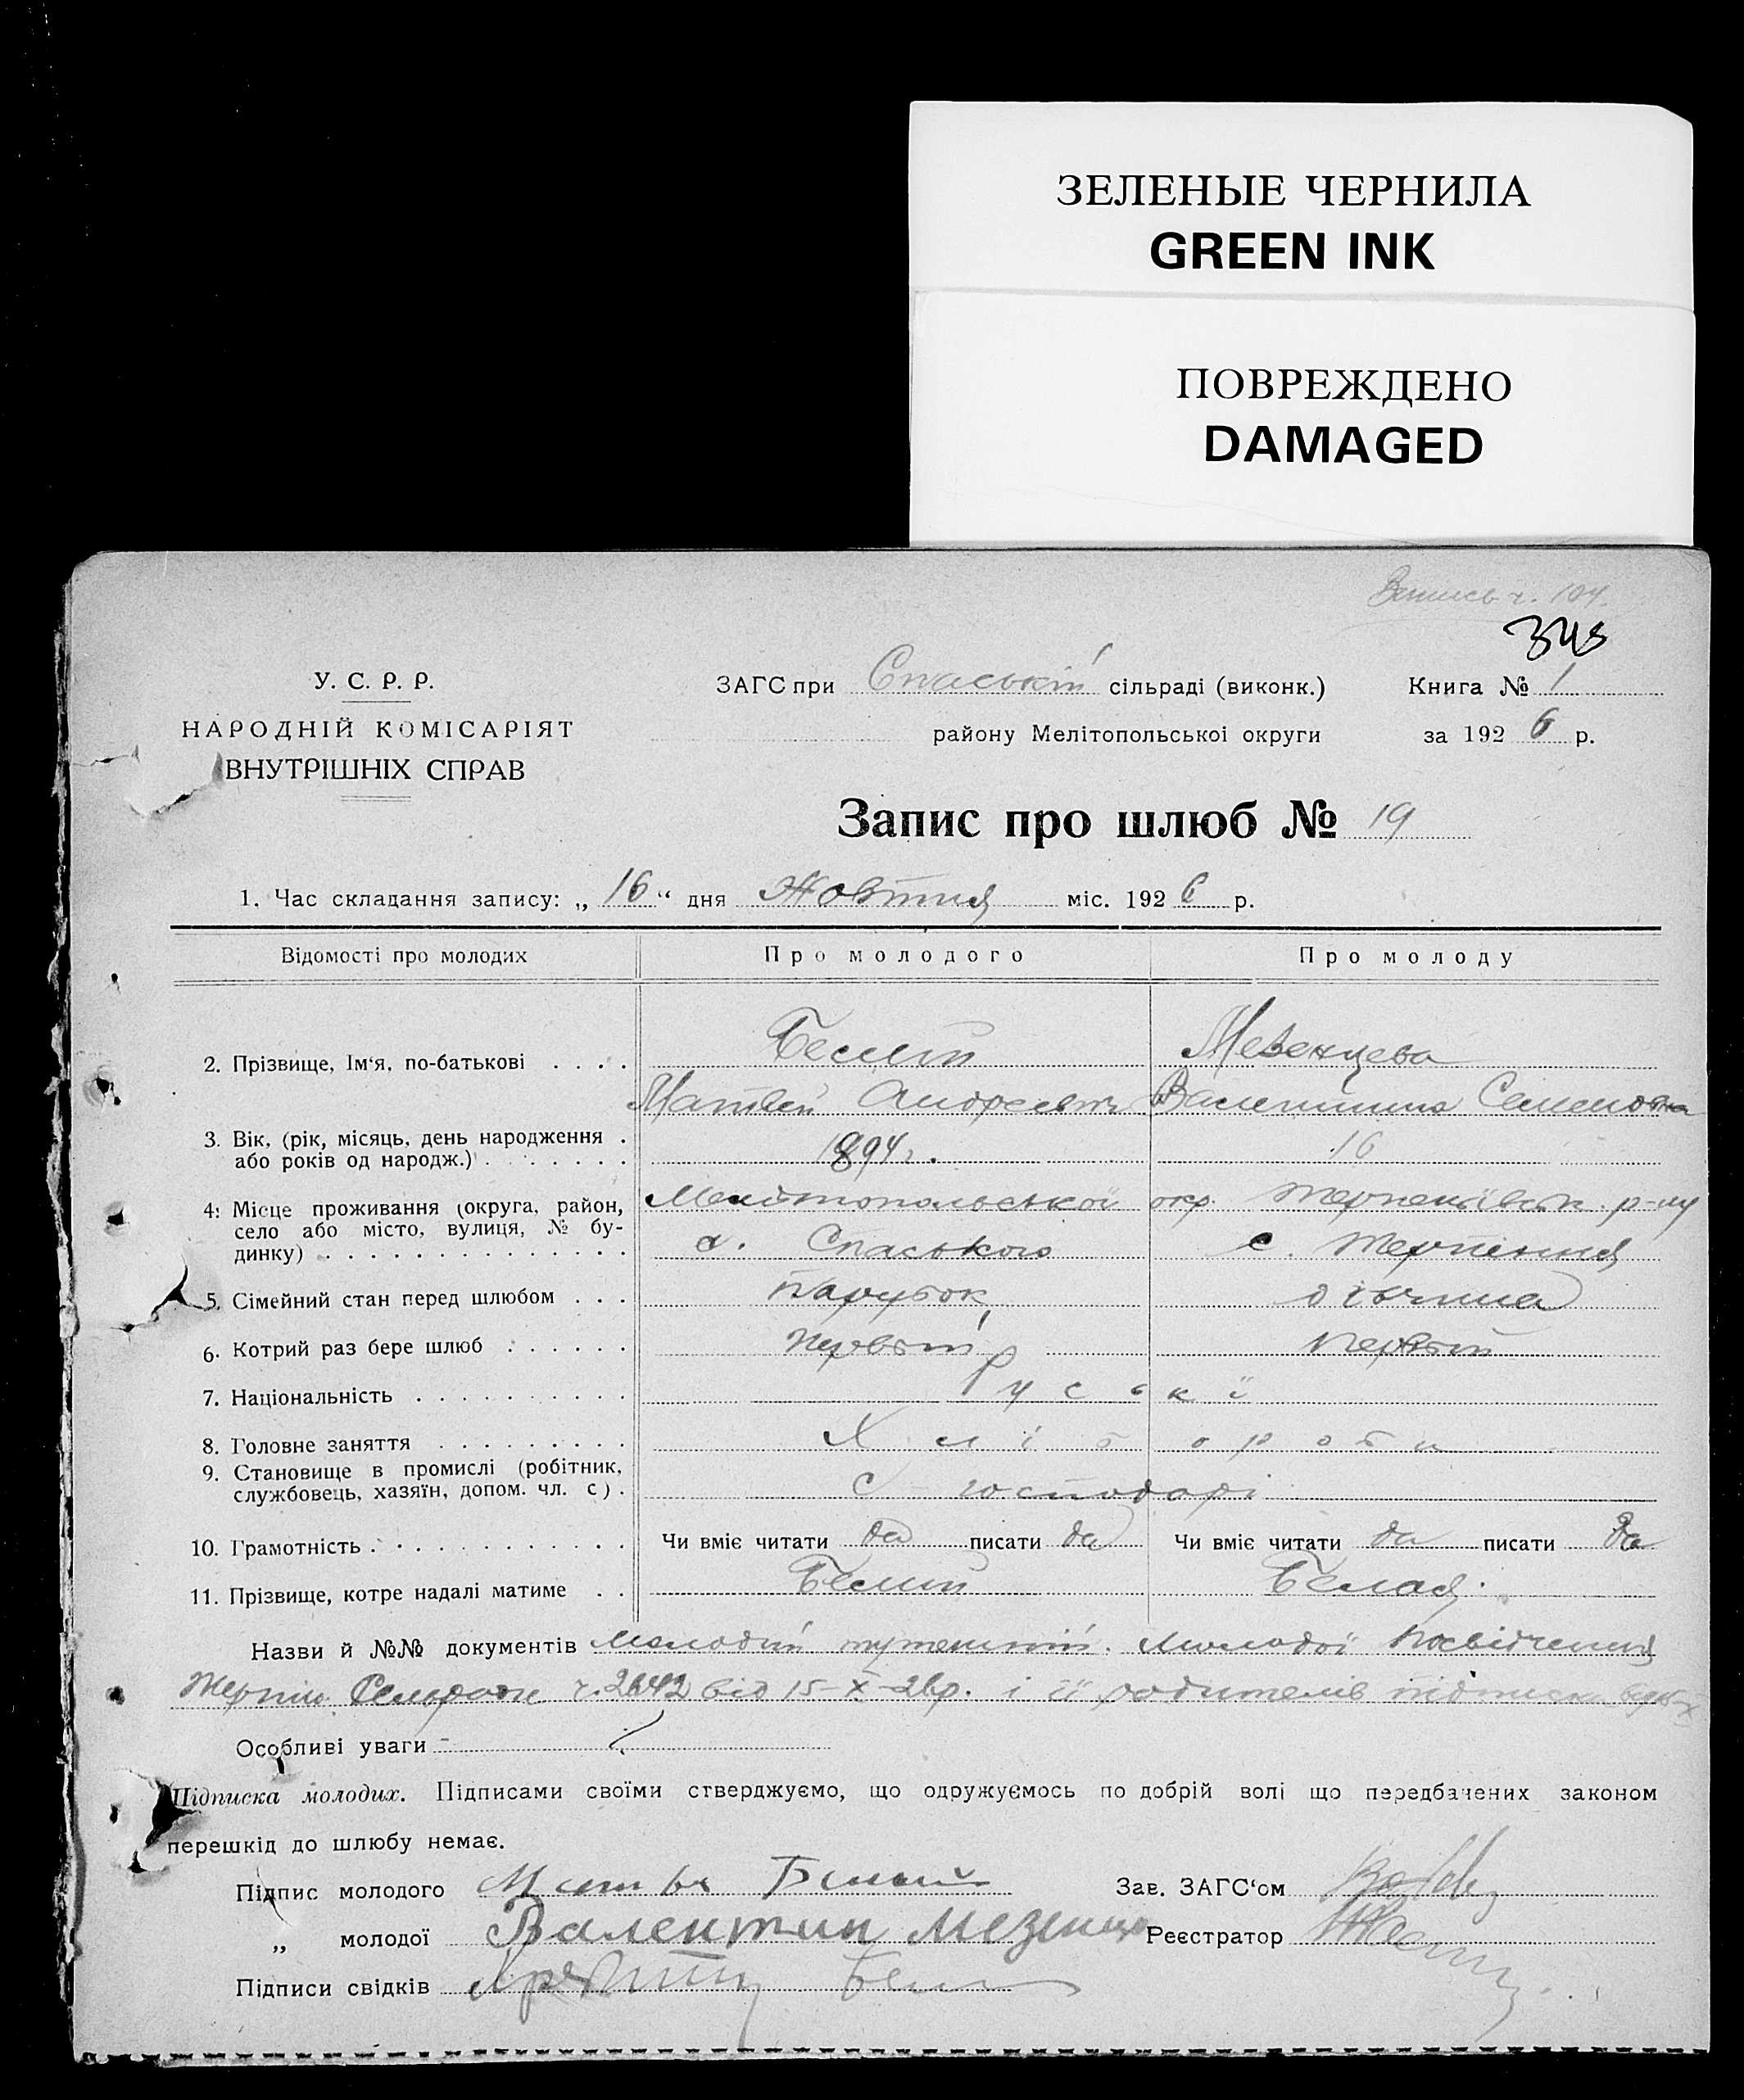 ЗЕЛЕНЫЕ ЧЕРНИЛА
GREEN INK
ПОВРЕЖДЕНО
DAMAGED
ч. 104.
345
У. С. Р. Р.
НАРОДНІЙ КОМІСАРІЯТ
ВНУТРІШНІХ СПРАВ
ЗАГС при Спаській сільраді (виконк.) Книга № 1
району Мелітопольської округи за 1926 р.
Запис про шлюб № 19
1. Час складання запису: „16“ дня Жовтня міс. 1926 р.
Відомості про молодих Про молодого Про молоду
2. Прізвище, Ім‘я, по-батькові Белий Мезенцева
Матвей Андреевич Валентина Семеновна
3. Вік, (рік, місяць, день народження або років од народж.) 1894 г. 16
4. Місце проживання (округа, район, село або місто, вулиця, № будинку) Мелітопольської окр. Терпеніївськ. р-ну
с. Спаського с. Терпіння
5. Сімейний стан перед шлюбом парубок дівчина
6. Котрий раз бере шлюб первый первый
7. Національність Руські
8. Головне заняття Хлібороби
9. Становище в промислі (робітник, службовець, хазяїн, допом. чл. с). С-господарі
10. Грамотність Чи вміє читати да писати да Чи вміє читати да писати да
11. Прізвище, котре надалі матиме Белий Белая.
Назви й №№ документів молодий тутешній. Молодої посвідчення
Терпін. Сельради ч. 2642 від 15-X-26р. і її родителів підписка
Особливі уваги -
Підписка молодих. Підписами своїми стверджуємо, що одружуємось по добрій волі що передбачених законом
перешкід до шлюбу немає.
Підпис молодого Белый Зав. ЗАГС‘ом
„ молодої Валентин Мезенцо Реєстратор
Підписи свідків